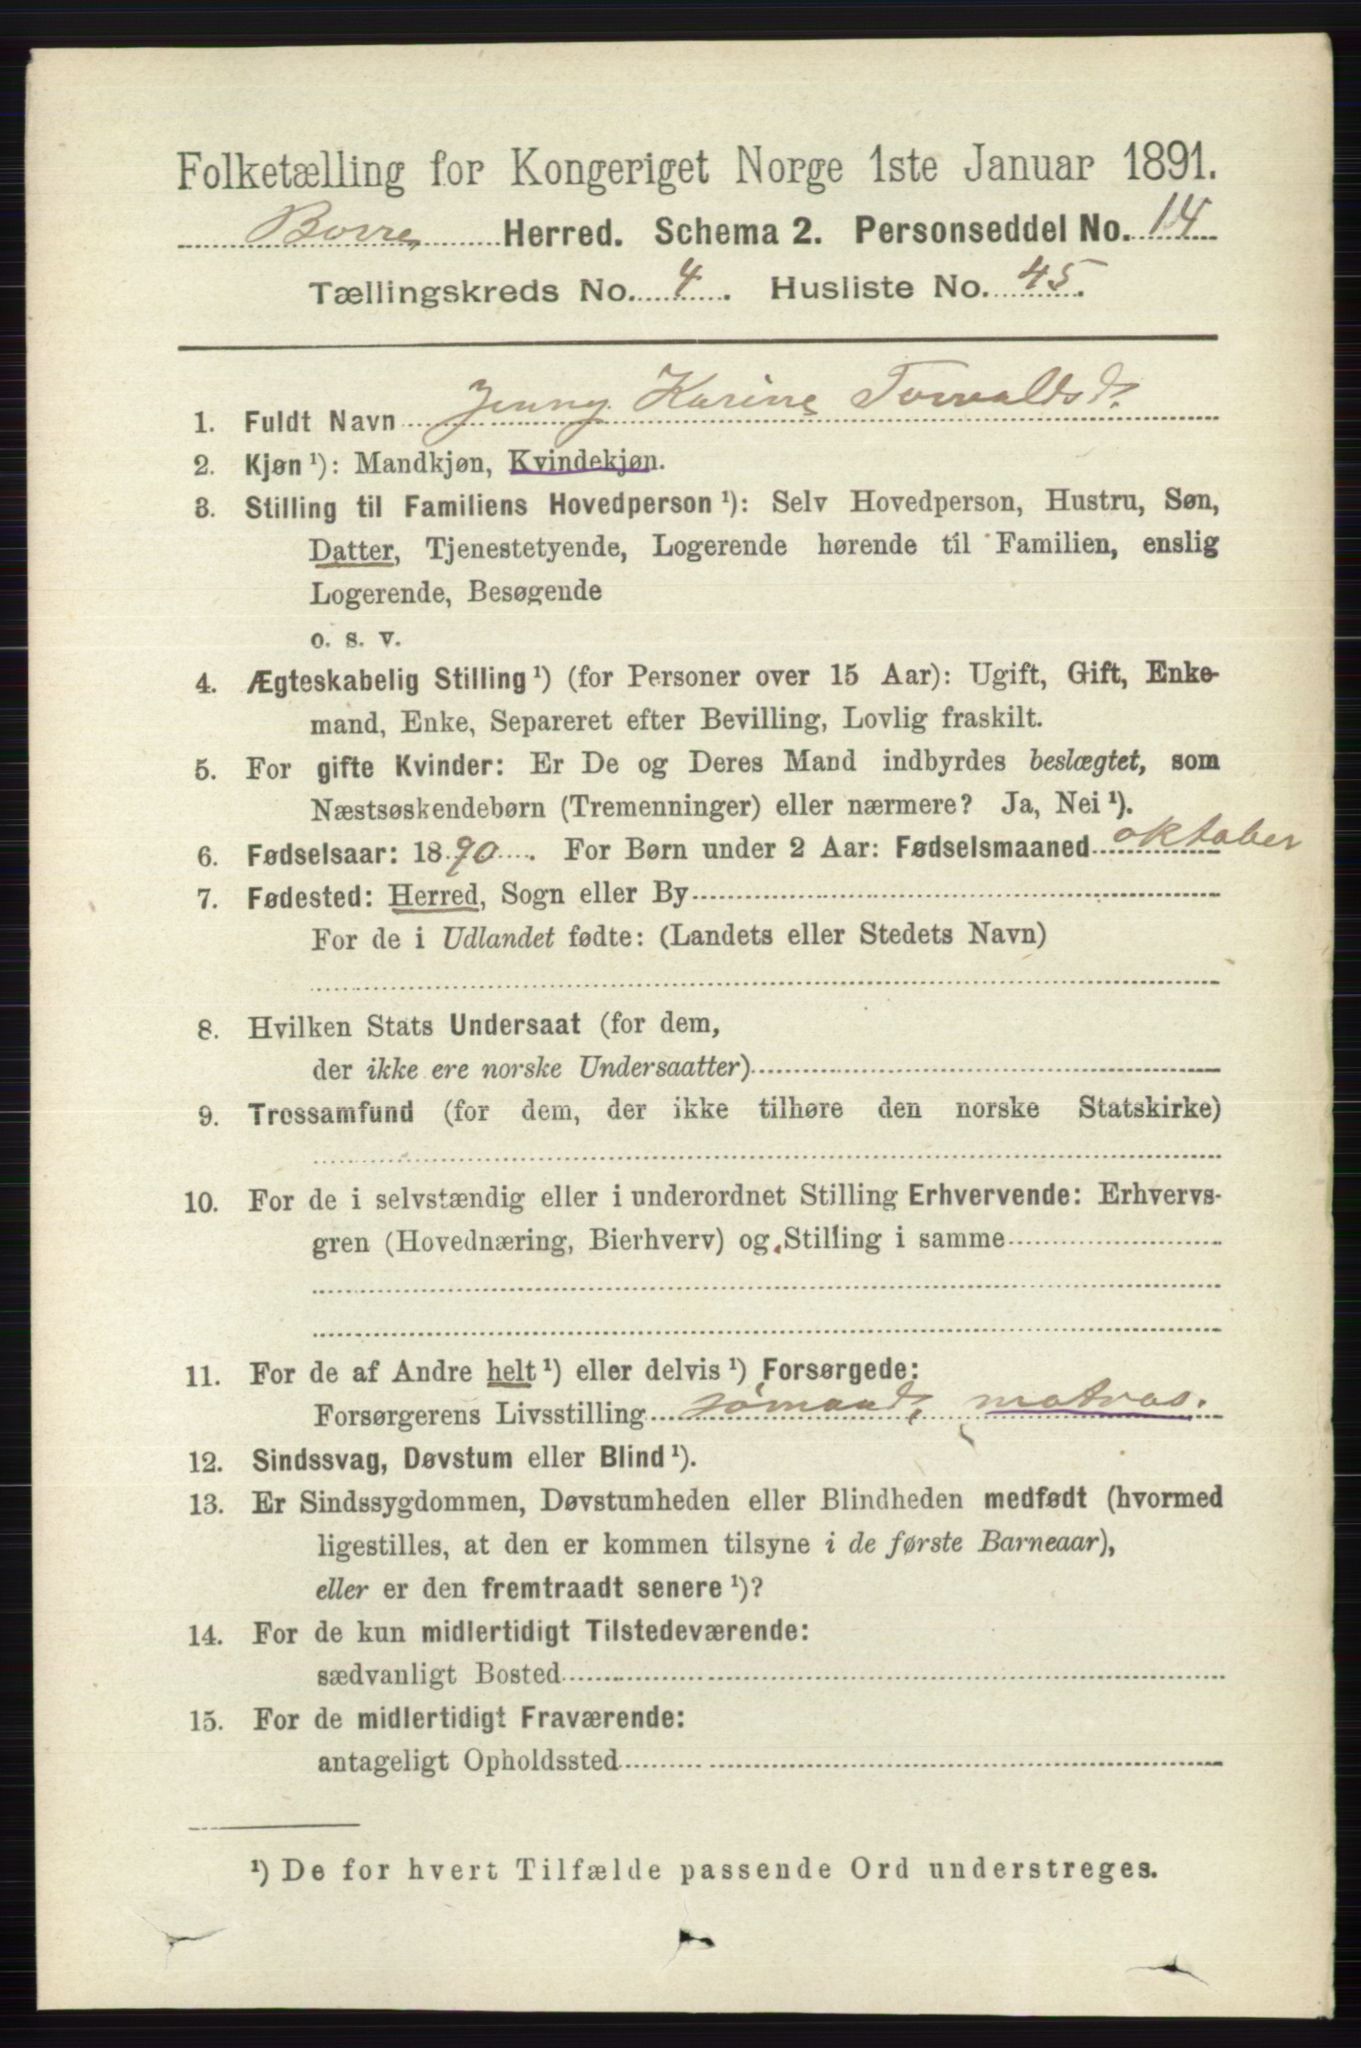 Folketælling for Kongeriget Norge 1ste Januar 1891.
Borre Herred. Schema 2. Personseddel No. 14
Tællingskreds No. 4. Husliste No. 45.
1. Fuldt Navn Jenny Karine Torvaldsd.
2. Kjøn ¹): Mandkjøn, Kvindekjøn.
3. Stilling til Familiens Hovedperson ¹): Selv Hovedperson, Hustru, Søn,
Datter, Tjenestetyende, Logerende hørende til Familien, enslig
Logerende, Besøgende
o. s. v.
4. Ægteskabelig Stilling ¹) (for Personer over 15 Aar): Ugift, Gift, Enke-
mand, Enke, Separeret efter Bevilling, Lovlig fraskilt.
5. For gifte Kvinder: Er De og Deres Mand indbyrdes beslægtet, som
Næstsøskendebørn (Tremenninger) eller nærmere? Ja, Nei ¹).
6. Fødselsaar: 1890. For Børn under 2 Aar: Fødselsmaaned oktober
7. Fødested: Herred, Sogn eller By
For de i Udlandet fødte: (Landets eller Stedets Navn)
8. Hvilken Stats Undersaat (for dem,
der ikke ere norske Undersaatter)
9. Trossamfund (for dem, der ikke tilhøre den norske Statskirke)
10. For de i selvstændig eller i underordnet Stilling Erhvervende: Erhvervs-
gren (Hovednæring, Bierhverv) og Stilling i samme
11. For de af Andre helt ¹) eller delvis ¹) Forsørgede:
Forsørgerens Livsstilling sømand, matros.
12. Sindssvag, Døvstum eller Blind ¹).
13. Er Sindssygdommen, Døvstumheden eller Blindheden medfødt (hvormed
ligestilles, at den er kommen tilsyne i de første Barneaar),
eller er den fremtraadt senere ¹)?
14. For de kun midlertidigt Tilstedeværende:
sædvanligt Bosted
15. For de midlertidigt Fraværende:
antageligt Opholdssted
¹) De for hvert Tilfælde passende Ord understreges.